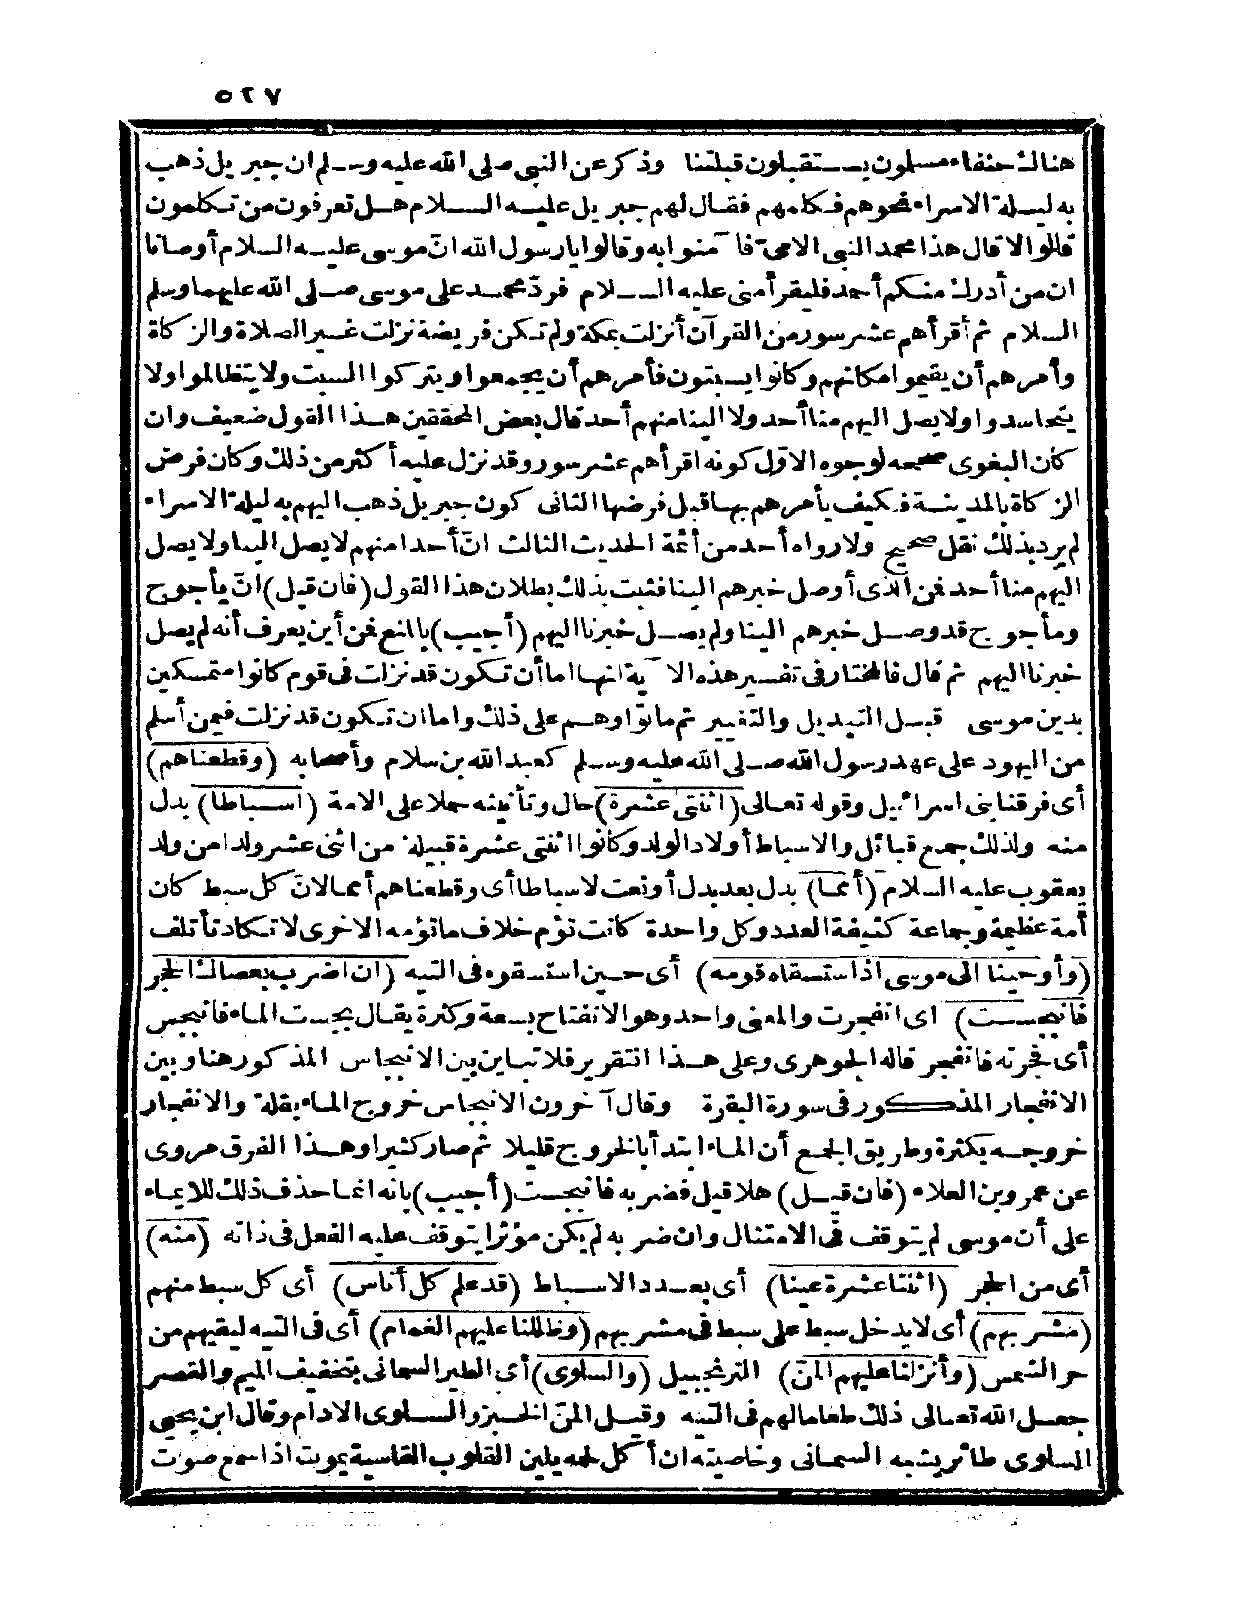 ٥٢٧
هناك حنفاء مسلمون يستقبلون قبلتنا وذكر عن النبي صلى الله عليه وسلم ان جبريل ذهب
به ليلة الاسراء نحوهم فكلمهم فقال لهم جبريل عليه السلام هل تعرفون من تكلمون
قالوا لا قال هذا محمد النبي الامي فآمنوا به وقالوا يا رسول الله انّ موسى عليه السلام أوصانا
ان من أدرك منكم أحمد فليقرأ مني عليه السلام فردّ محمد على موسى صلى الله عليهما وسلم
السلام ثم أقرأهم عشر سور من القرآن أنزلت بمكة ولم تكن فريضة نزلت غير الصلاة والزكاة
وأمرهم أن يقيموا مكانهم وكانوا يسبتون فأمرهم أن يجمعوا ويتركوا السبت ولا يتظالموا ولا
يتحاسدوا ولا يصل اليهم منا أحد ولا الينا منهم أحد قال بعض المحققين هذا القول ضعيف وان
كان البغوى صححه لوجوه الاوّل كونه اقرأهم عشر سور وقد نزل عليه أكثر من ذلك وكان فرض
الزكاة بالمدينة فكيف يأمرهم بها قبل فرضها الثانى كون جبريل ذهب اليهم به ليلة الاسراء
لم يرد بذلك نقل صحيح ولا رواه أحد من أئمة الحديث الثالث انّ أحدا منهم لا يصل الينا ولا يصل
اليهم منا أحد فمن الذى أوصل خبرهم الينا فثبت بذلك بطلان هذا القول (فان قيل) انّ يأجوج
ومأجوج قد وصل خبرهم الينا ولم يصل خبرنا اليهم (أجيب) بالمنع فمن أين يعرف أنه لم يصل
خبرنا اليهم ثم قال فالمختار فى تفسير هذه الآية انها اما أن تكون قد نزلت فى قوم كانوا متمسكين
بدين موسى قبل التبديل والتغيير ثم ماتوا وهم على ذلك واما ان تكون قد نزلت فيمن أسلم
من اليهود على عهد رسول الله صلى الله عليه وسلم كعبد الله بن سلام وأصحابه (وقطعناهم)
أى فرقنا بنى اسرائيل وقوله تعالى (اثنتى عشرة) حال وتأنيثه حملا على الامة (اسباطا) بدل
منه ولذلك جمع قبائل والاسباط أولاد الولد وكانوا اثنتى عشرة قبيلة من اثنى عشر ولدا من ولد
يعقوب عليه السلام (أمما) بدل بعد بدل أو نعت لاسباطا أى وقطعناهم أمما لانّ كل سبط كان
أمة عظيمة وجماعة كثيفة العدد وكل واحدة كانت تؤم خلاف ما تؤمه الاخرى لا تكاد تأتلف
(وأوحينا الى موسى اذ استسقاه قومه) أى حين استسقوه فى التيه (ان اضرب بعصاك الحجر
فانبجست) اى انفجرت والمعنى واحد وهو الانفتاح بسعة وكثرة يقال بجست الماء فانبجس
أى فجرته فانفجر قاله الجوهرى وعلى هذا التقرير فلا تباين بين الانبجاس المذكور هنا وبين
الانفجار المذكور فى سورة البقرة وقال آخرون الانبجاس خروج الماء بقلة والانفجار
خروجه بكثرة وطريق الجمع أن الماء ابتدأ بالخروج قليلا ثم صار كثيرا وهذا الفرق مروى
عن عمرو بن العلاء (فان قيل) هلا قيل فضربه فانبجست (أجيب) بانه انما حذف ذلك للايماء
على أن موسى لم يتوقف فى الامتثال وان ضربه لم يكن مؤثرا يتوقف عليه الفعل فى ذاته (منه)
أى من الحجر (اثنتا عشرة عينا) أى بعدد الاسباط (قد علم كل أناس) أى كل سبط منهم
(مشربهم) أى لا يدخل سبط على سبط فى مشربهم (وظللنا عليهم الغمام) أى فى التيه ليقيهم من
حر الشمس (وأنزلنا عليهم المنّ) الترنجبيل (والسلوى) أى الطير السمانى بتخفيف الميم والقصر
جعل الله تعالى ذلك طعاما لهم فى التيه وقيل المنّ الخبز والسلوى الادام وقال ابن يحيى
السلوى طائر يشبه السمانى وخاصيته ان أكل لحمه يلين القلوب القاسية يموت اذا سمع صوت